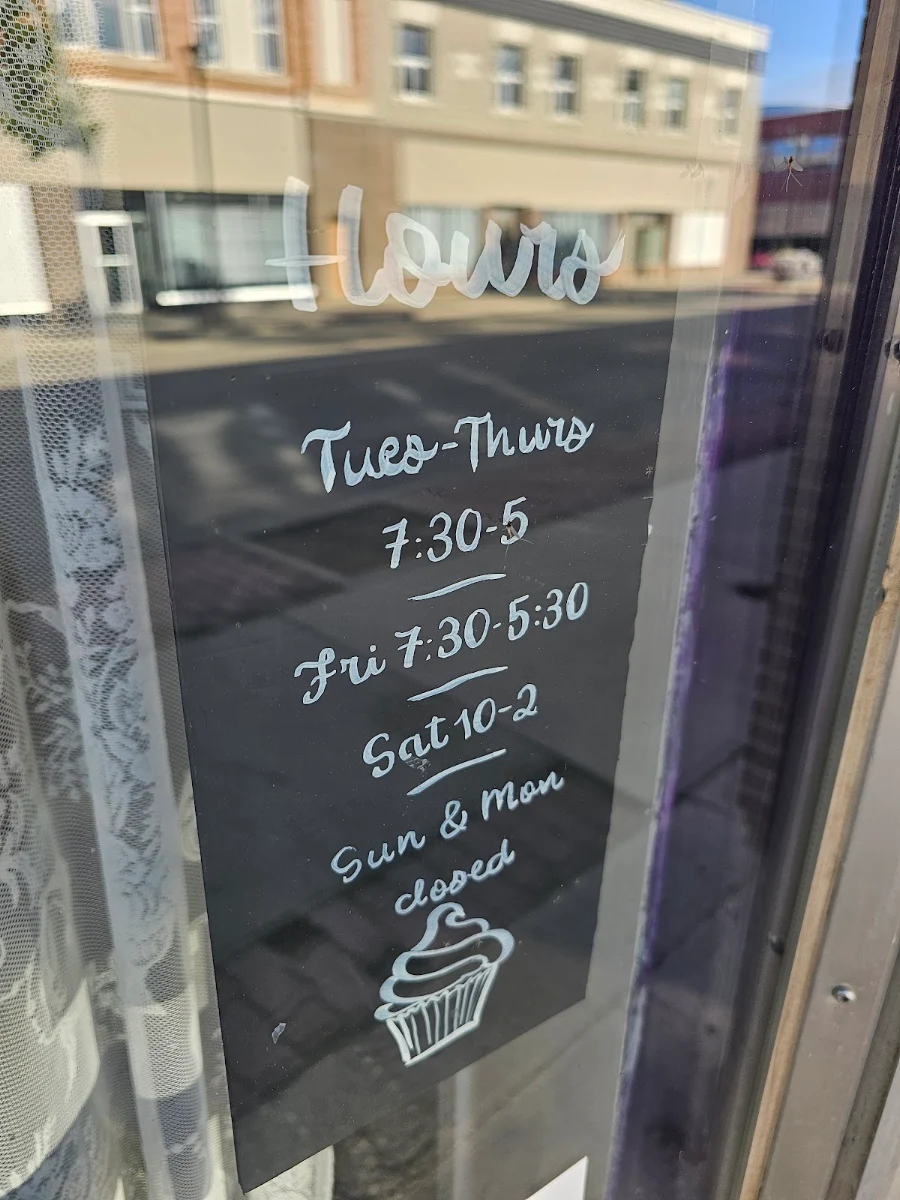 Hours
Tues-Thurs
7:30-5
Fri 7:30-5:30
Sat 10-2
Sun & Mon
closed